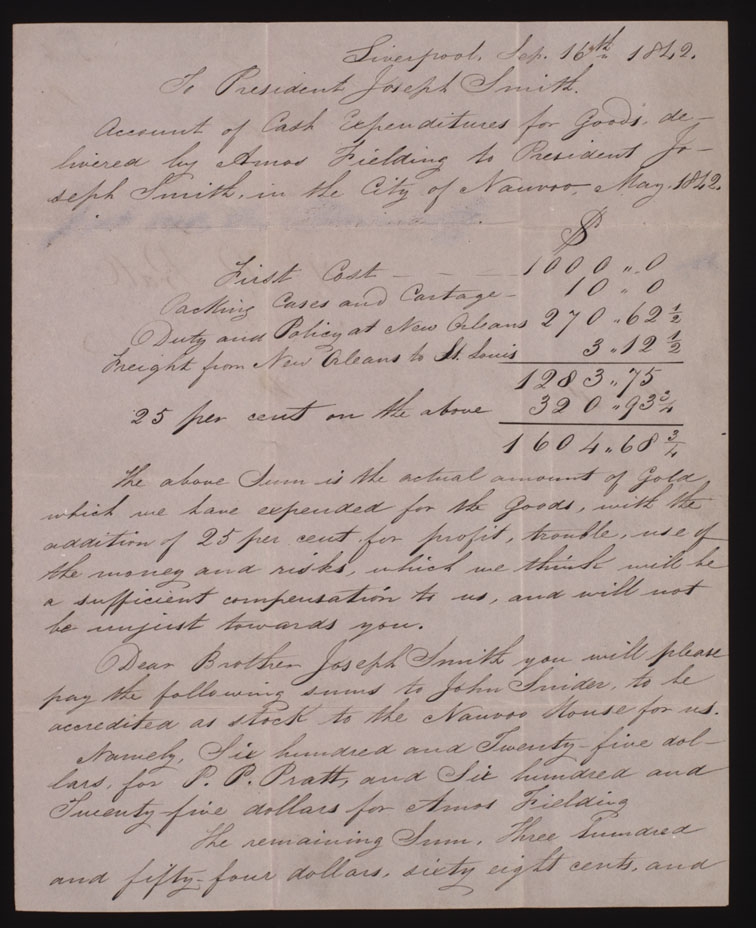 Liverpool, Sep. 16th 1842.
To President Joseph Smith.
Account of Cash Expenditures for Goods, de-
livered by Amos Fielding to President Jo-
seph Smith, in the City of Nauvoo, May. 1842.
$
First Cost - - - 1000 " 0
Packing Cases and Cartage - 10 " 0
Duty and Policy at New Orleans 270 " 62 1/2
Freight from New Orleans to St. Louis 3 " 12 1/2
1283 " 75
25 per cent on the above 320 " 93 3/4
1604 " 68 3/4
The above Sum is the actual amount of Gold
which we have expended for the Goods, with the
addition of 25 per cent for profit, trouble, use of
the money and risks, which we think will be
a sufficient compensation to us, and will not
be unjust towards you.
Dear Brother Joseph Smith you will please
pay the following sums to John Snider, to be
accredited as stock to the Nauvoo House for us.
Namely, Six hundred and Twenty-five dol-
lars, for P. P. Pratt, and Six hundred and
Twenty-five dollars for Amos Fielding
The remaining Sum, Three Hundred
and fifty-four dollars, sixty eight cents, and